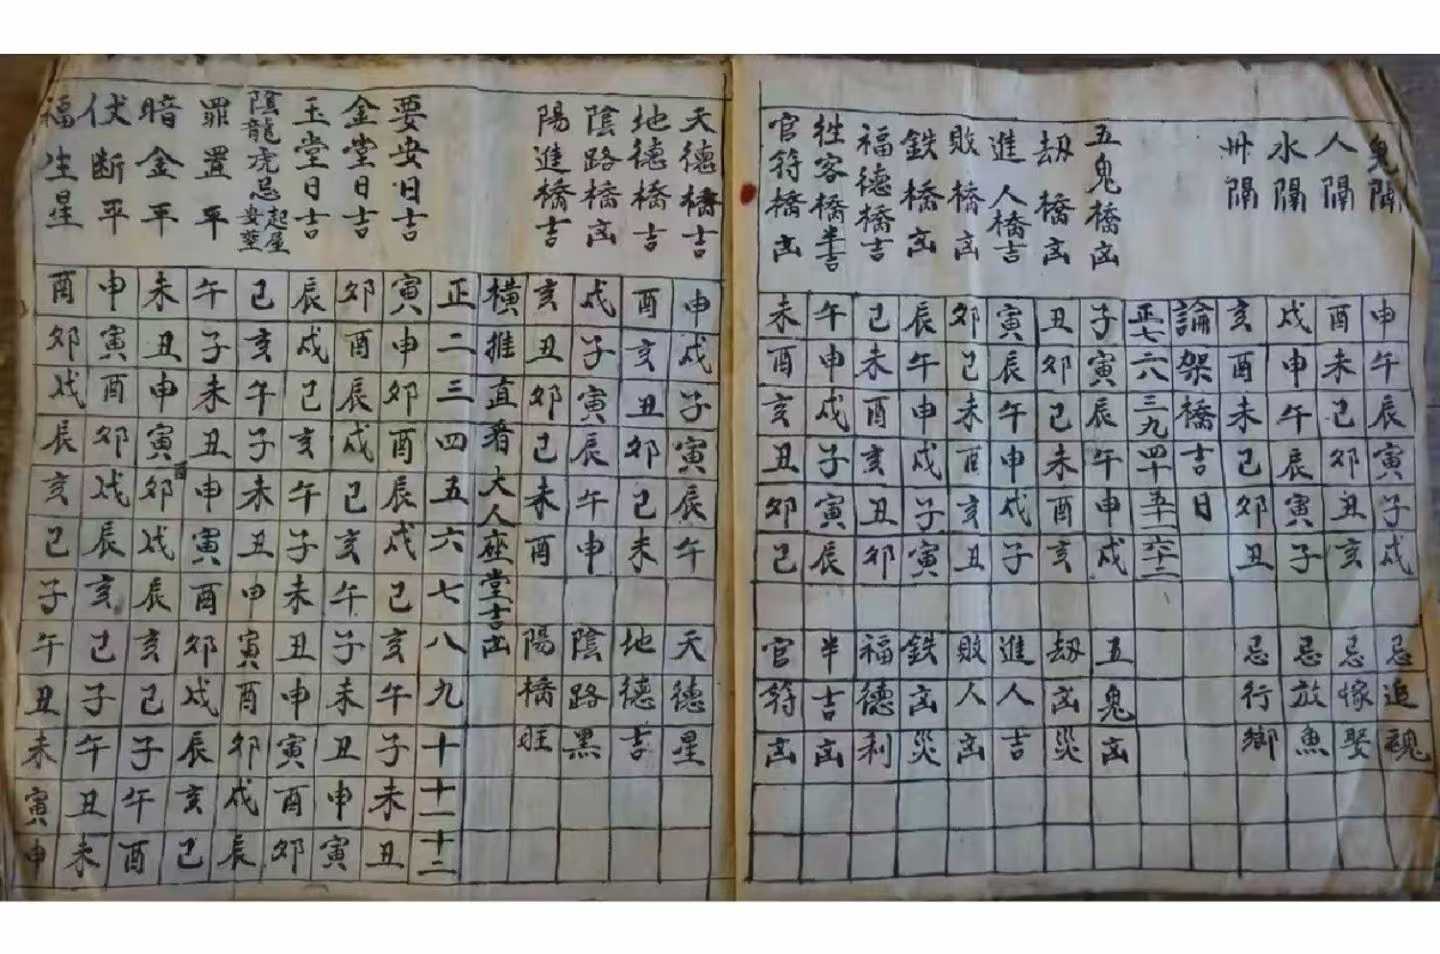 鬼隔申午辰寅子戌忌追魂
人隔酉未巳卯丑亥忌嫁娶
水隔戌申午辰寅子忌放魚
州隔亥酉未巳卯丑忌行鄉
論架橋吉日
正七六八三九四十五十一六十二
五鬼橋凶子寅辰午申戌五鬼凶
刼橋凶丑卯巳未酉亥刼凶災
進人橋吉寅辰午申戌子進人吉
敗橋凶卯巳未酉亥丑敗人凶
鉄橋凶辰午申戌子寅鉄凶災
福德橋吉巳未酉亥丑卯福德利
牲客橋半吉午申戌子寅辰半吉凶
官符橋凶未酉亥丑卯巳官符凶
天德橋吉申戌子寅辰午天德星
地德橋吉酉亥丑卯巳未地德吉
陰路橋凶戌子寅辰午申陰路黑
陽進橋吉亥丑卯巳未酉陽橋旺
橫推直看大人座堂吉凶
正二三四五六七八九十十一十二
要安日吉寅申卯酉辰戌巳亥午子未丑
金堂日吉卯酉辰戌巳亥午子未丑申寅
玉堂日吉辰戌巳亥午子未丑申寅酉卯
陰龍虎忌起屋安葬巳亥午子未丑申寅酉卯戌辰
罪置平午子未丑申寅酉卯戌辰亥巳
暗金平未丑申寅酉卯戌辰亥巳子午酉
伏断平申寅酉卯戌辰亥巳子午丑未
福生星酉卯戌辰亥巳子午丑未寅申